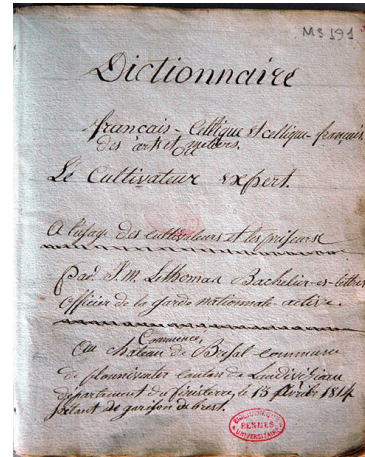 MS 191
Dictionnaire
français - Celtique et celtique - français
des arts et métiers.
Le Cultivateur expert.
A l'usage des cultivateurs et les
par J. M. Lethomas Bachelier-es-lettres
officier de la garde nationale active.
Commencé
Au chateau de commune
de plounéventer canton de Landivisiau
département du finisterre, le 15 février 1814
de garnison de brest.
BIBLIOTHÈQUE
RENNES
UNIVERSITAIRE